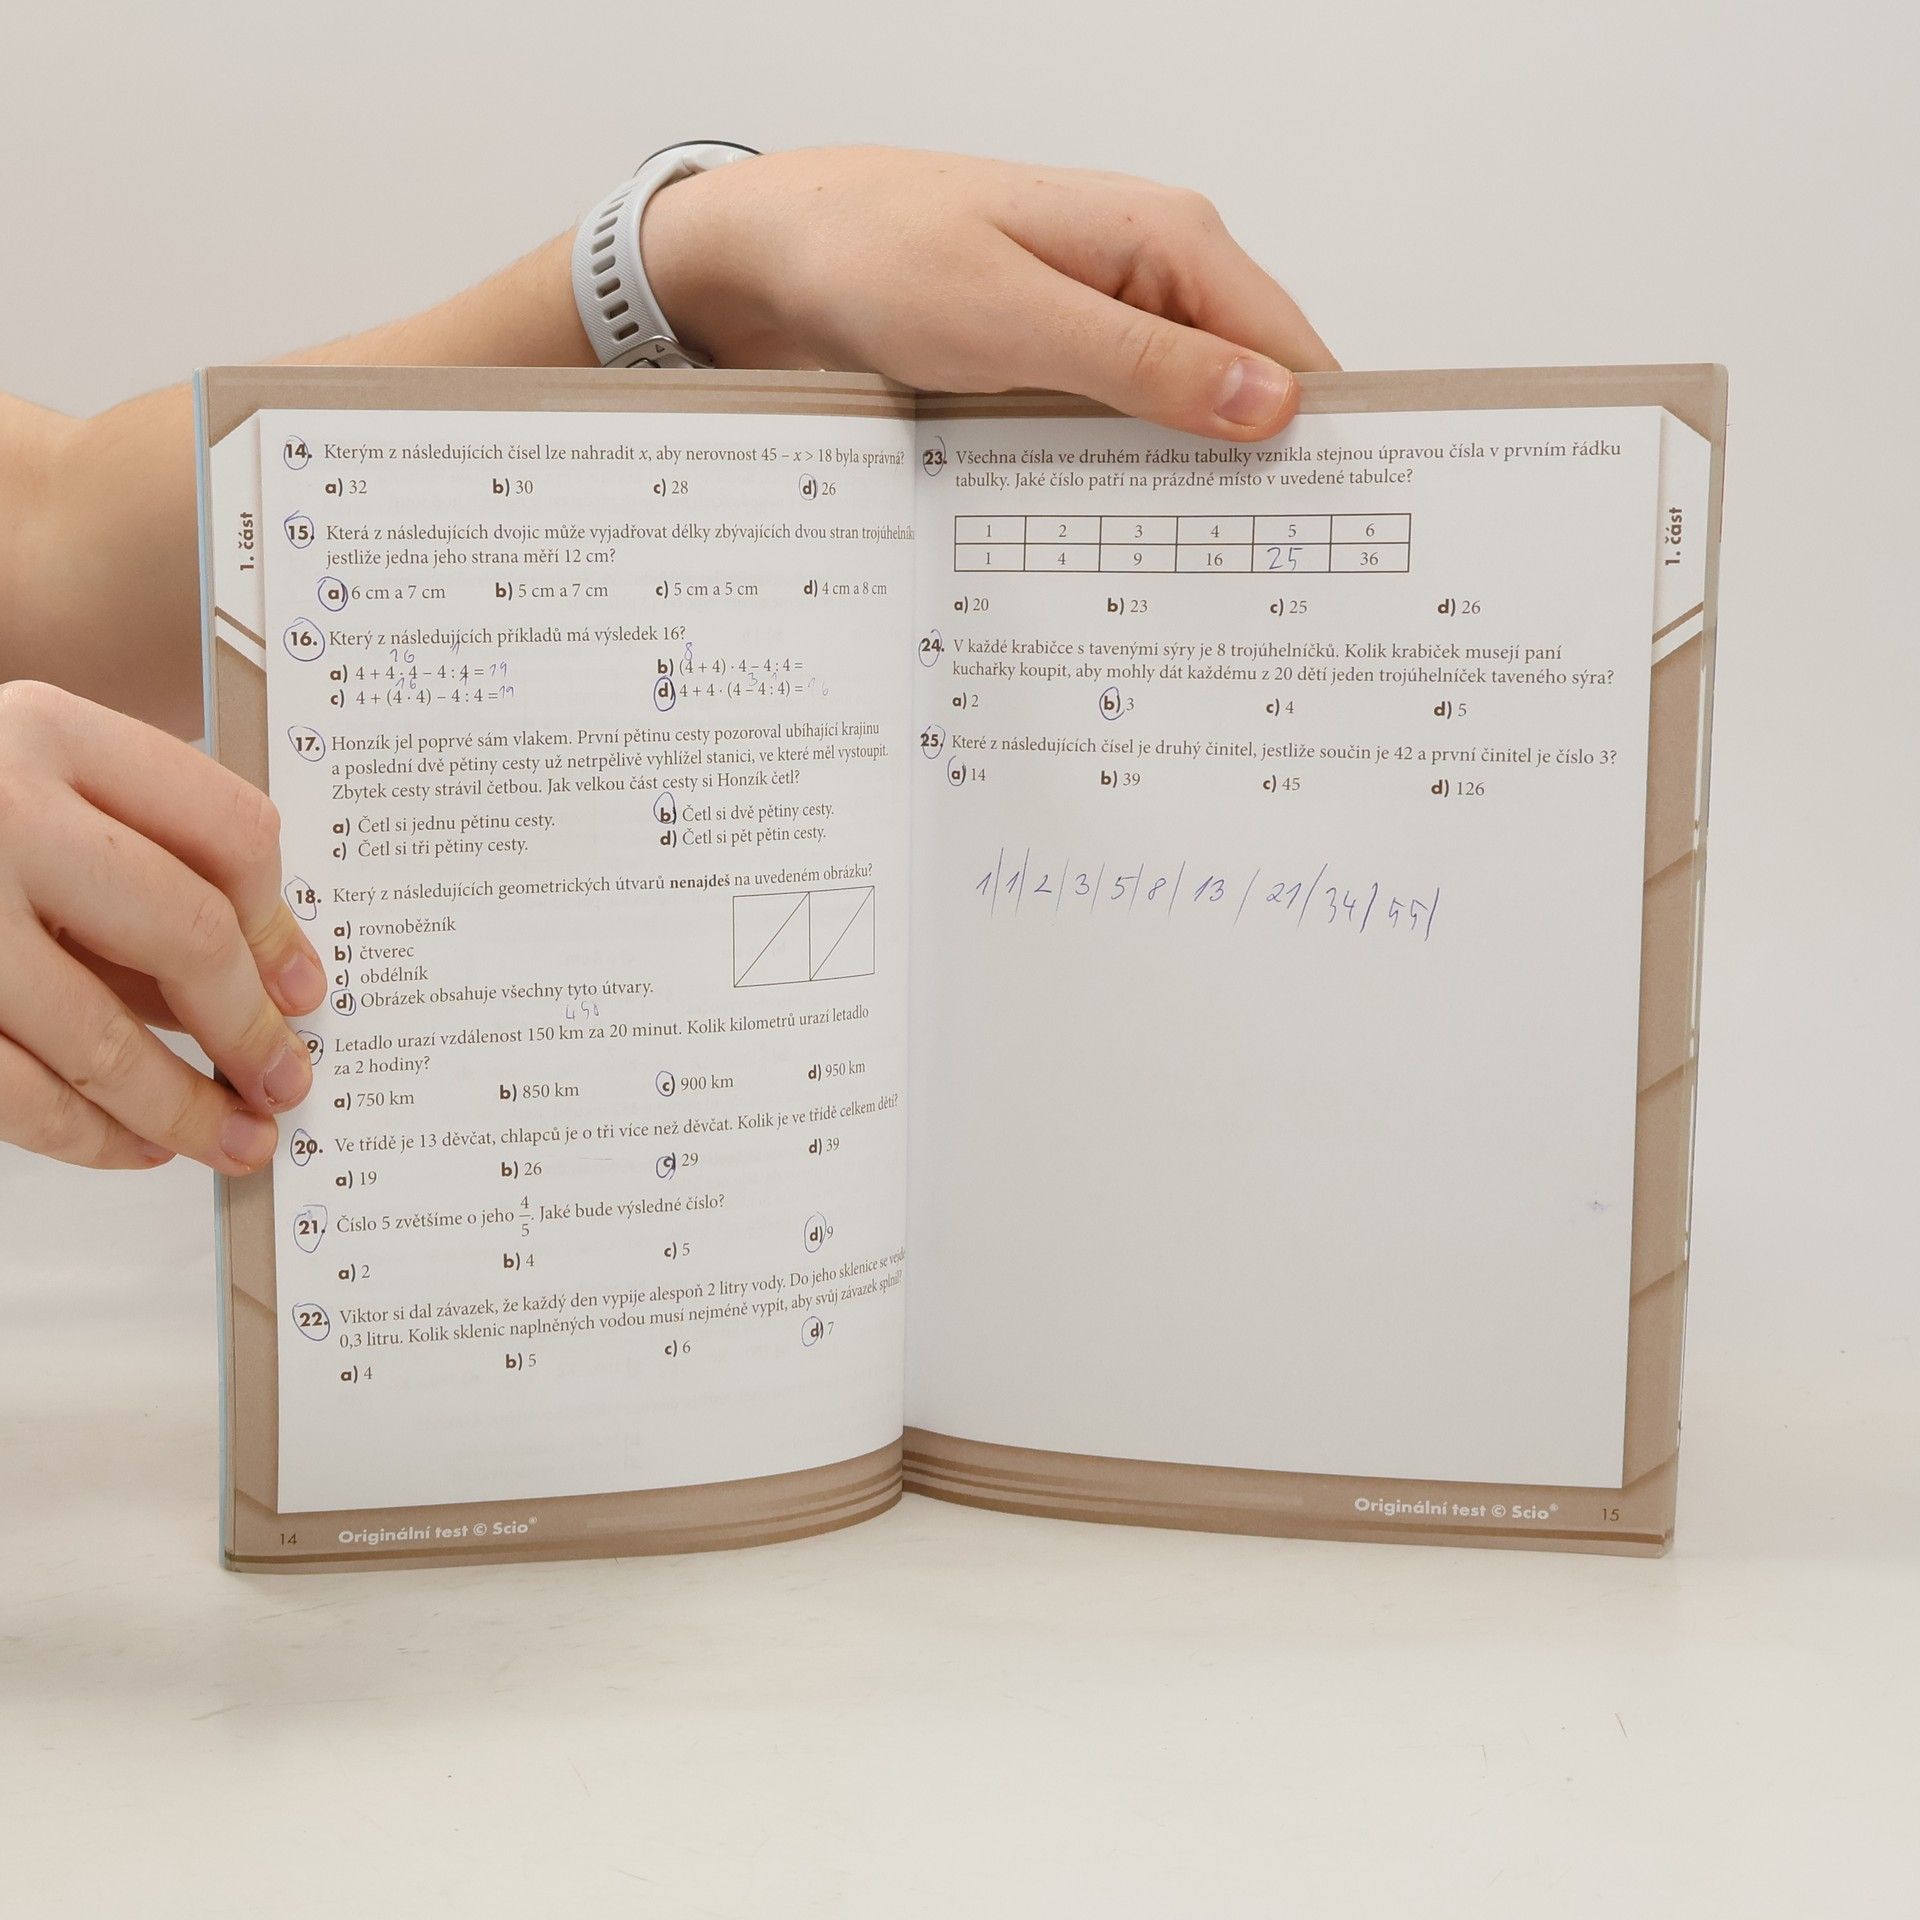 1. část
14. Kterým z následujících čísel lze nahradit x, aby nerovnost 45 – x > 18 byla správná?
a) 32 b) 30 c) 28 d) 26
15. Která z následujících dvojic může vyjadřovat délky zbývajících dvou stran
jestliže jedna jeho strana měří 12 cm?
a) 6 cm a 7 cm b) 5 cm a 7 cm c) 5 cm a 5 cm d) 4 cm a 8 cm
16. Který z následujících příkladů má výsledek 16?
16 8
a) 4 + 4 · 4 – 4 : 4 = 19 b) (4 + 4) · 4 – 4 : 4 =
16 1 3
c) 4 + (4 · 4) – 4 : 4 = 19 d) 4 + 4 · (4 – 4 : 4) = 16
17. Honzík jel poprvé sám vlakem. První pětinu cesty pozoroval ubíhající krajinu
a poslední dvě pětiny cesty už netrpělivě vyhlížel stanici, ve které měl vystoupit.
Zbytek cesty strávil četbou. Jak velkou část cesty si Honzík četl?
a) Četl si jednu pětinu cesty. b) Četl si dvě pětiny cesty.
c) Četl si tři pětiny cesty. d) Četl si pět pětin cesty.
18. Který z následujících geometrických útvarů nenajdeš na uvedeném obrázku?
a) rovnoběžník
b) čtverec
c) obdélník
d) Obrázek obsahuje všechny tyto útvary.
450
9. Letadlo urazí vzdálenost 150 km za 20 minut. Kolik kilometrů urazí letadlo
za 2 hodiny?
a) 750 km b) 850 km c) 900 km d) 950 km
20. Ve třídě je 13 děvčat, chlapců je o tři více než děvčat. Kolik je ve třídě celkem dětí?
a) 19 b) 26 c) 29 d) 39
21. Číslo 5 zvětšíme o jeho 4/5. Jaké bude výsledné číslo?
a) 2 b) 4 c) 5 d) 9
22. Viktor si dal závazek, že každý den vypije alespoň 2 litry vody. Do jeho sklenice se
0,3 litru. Kolik sklenic naplněných vodou musí nejméně vypít, aby svůj závazek splnil?
a) 4 b) 5 c) 6 d) 7
14 Originální test © Scio®
23. Všechna čísla ve druhém řádku tabulky vznikla stejnou úpravou čísla v prvním řádku
tabulky. Jaké číslo patří na prázdné místo v uvedené tabulce?
1 2 3 4 5 6
1 4 9 16 25 36
a) 20 b) 23 c) 25 d) 26
24. V každé krabičce s tavenými sýry je 8 trojúhelníčků. Kolik krabiček musejí paní
kuchařky koupit, aby mohly dát každému z 20 dětí jeden trojúhelníček taveného sýra?
a) 2 b) 3 c) 4 d) 5
25. Které z následujících čísel je druhý činitel, jestliže součin je 42 a první činitel je číslo 3?
a) 14 b) 39 c) 45 d) 126
1/1/2/3/5/8/13/21/34/55/
1. část
Originální test © Scio® 15